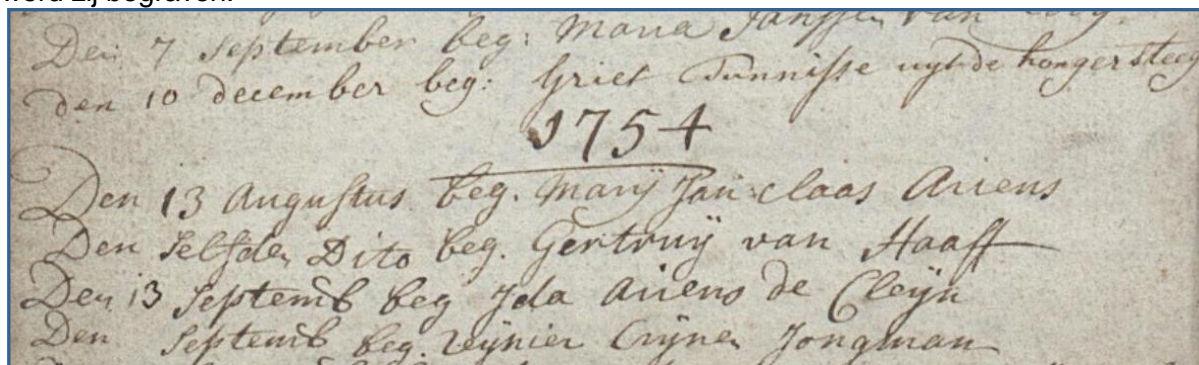 werd zij begraven.
Den 7 September beg: Maria Janssen van
den 10 december beg: Griet Tunnisse uyt de honger steeg
1754
Den 13 Augustus beg. Marij Jan claas Ariens
Den Selfden Dito beg. Gertruij van Haaff
Den 13 Septemb beg Ida Ariens de Cleijn
Den Septemb beg. Reijnier Crijnen Jongman